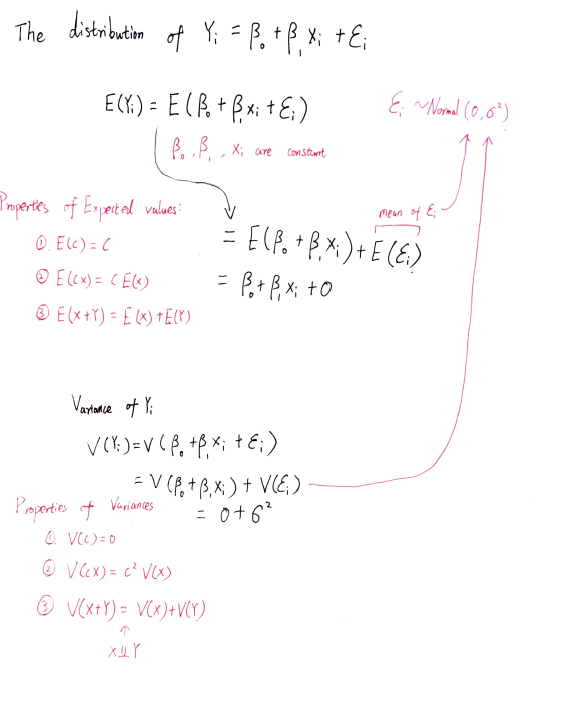 The distribution of Yᵢ = β₀ + β₁ xᵢ + εᵢ
E(Yᵢ) = E(β₀ + β₁xᵢ + εᵢ)
εᵢ ~Normal (0, σ²)
β₀, β₁, xᵢ are constant
Properties of Expected values:
① E(c) = C
② E(cx) = c E(x)
③ E(x+Y) = E(x) + E(Y)
mean of εᵢ
= E(β₀ + β₁xᵢ) + E(εᵢ)
= β₀ + β₁xᵢ + 0
Variance of Yᵢ
V(Yᵢ) = V(β₀ + β₁xᵢ + εᵢ)
= V(β₀ + β₁xᵢ) + V(εᵢ)
= 0 + σ²
Properties of Variances
① V(c) = 0
② V(cX) = c² V(x)
③ V(x+Y) = V(x) + V(Y)
↑
x ⫫ Y